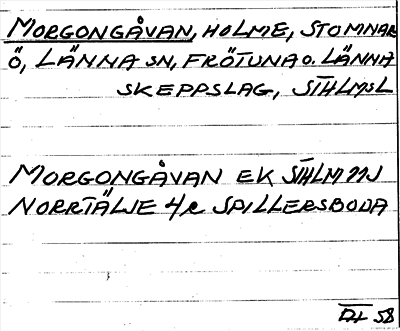 MORGONGÅVAN, HOLME, STOMNAR
Ö, LÄNNA SN, FRÖTUNA O. LÄNNA
SKEPPSLAG, STHLMSL
MORGONGÅVAN EK STHLM NJ
NORRTÄLJE 4/R SPILLERSBODA
DL 58